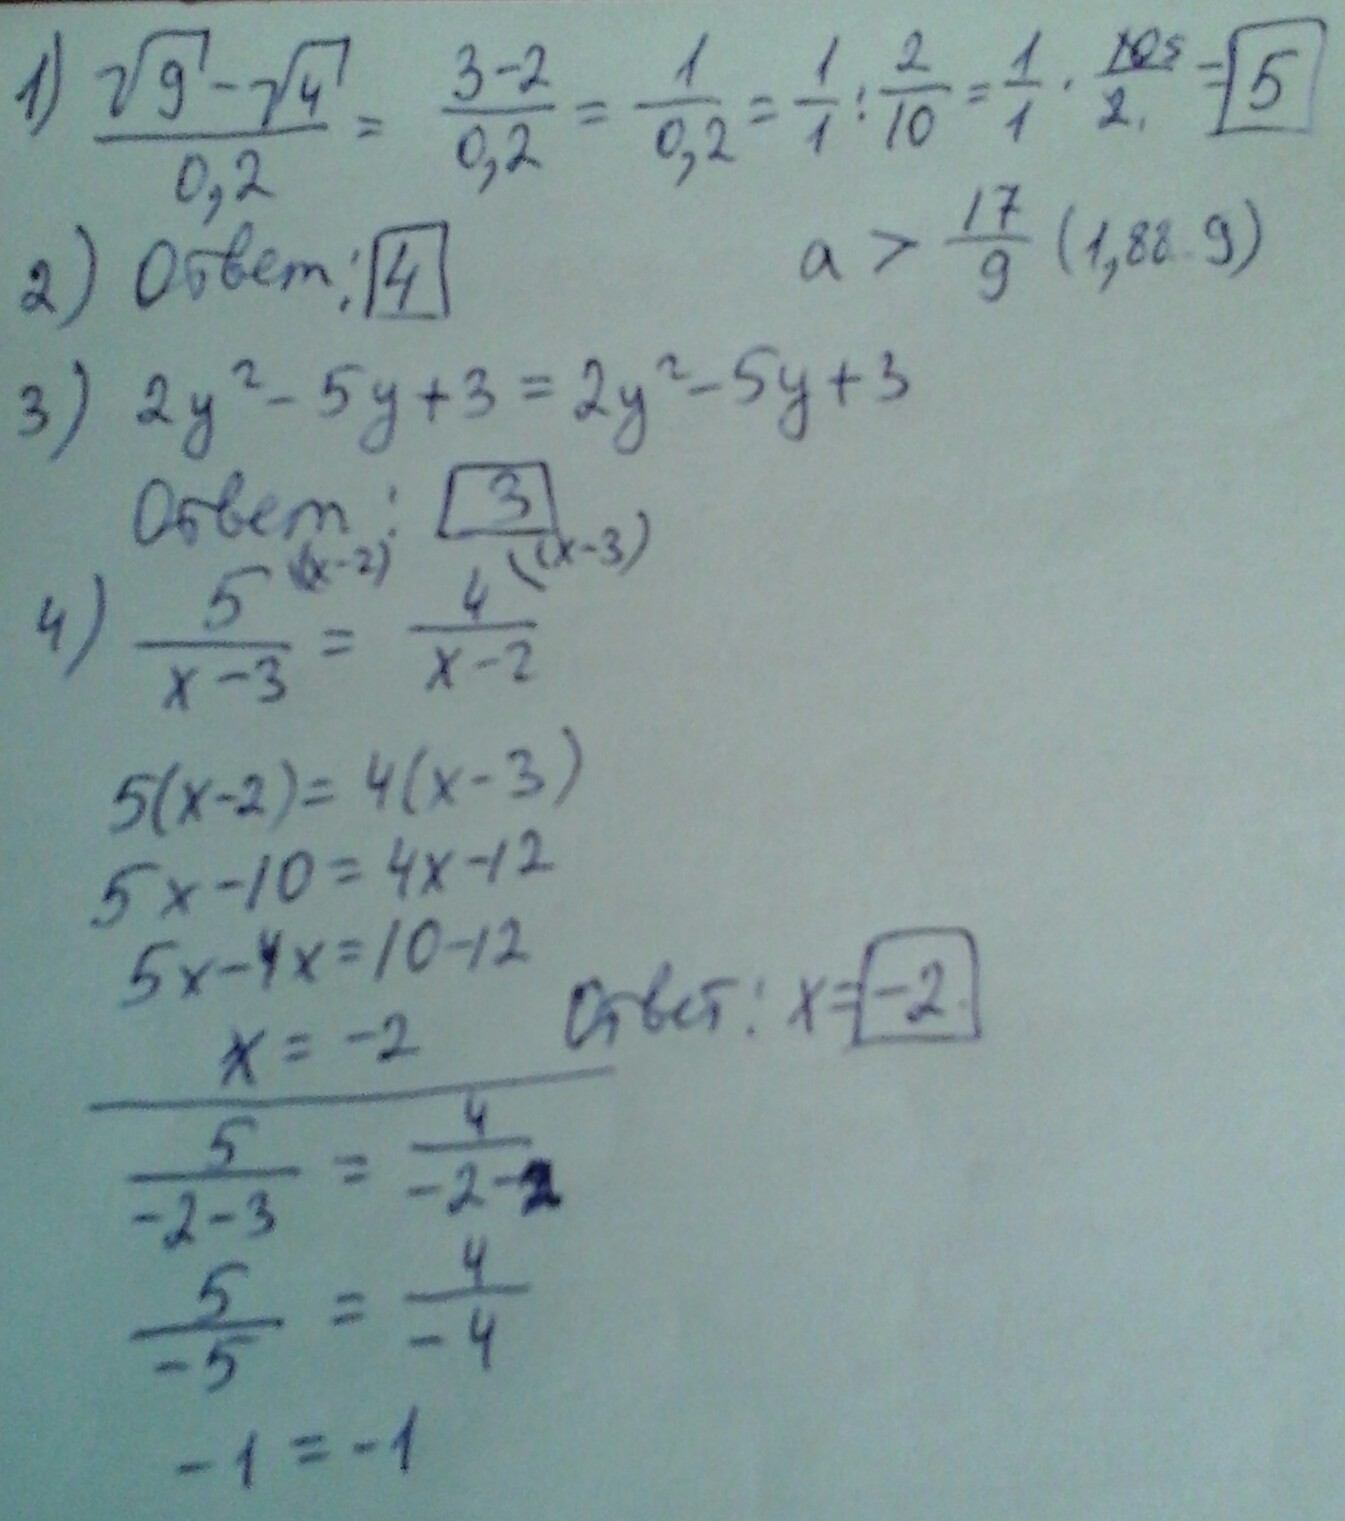 1) (√9 - √4)/0,2 = (3-2)/0,2 = 1/0,2 = 1/1 : 2/10 = 1/1 · 10 5/2 = 5
2) Ответ: 4 a > 17/9 (1,88..9)
3) 2y² - 5y + 3 = 2y² - 5y + 3
Ответ: 3
4) 5 (x-2)/(x-3) = 4 (x-3)/(x-2)
5(x-2) = 4(x-3)
5x-10 = 4x-12
5x-4x = 10-12
x = -2 Ответ: x = -2
5/(-2-3) = 4/(-2-2)
5/-5 = 4/-4
-1 = -1